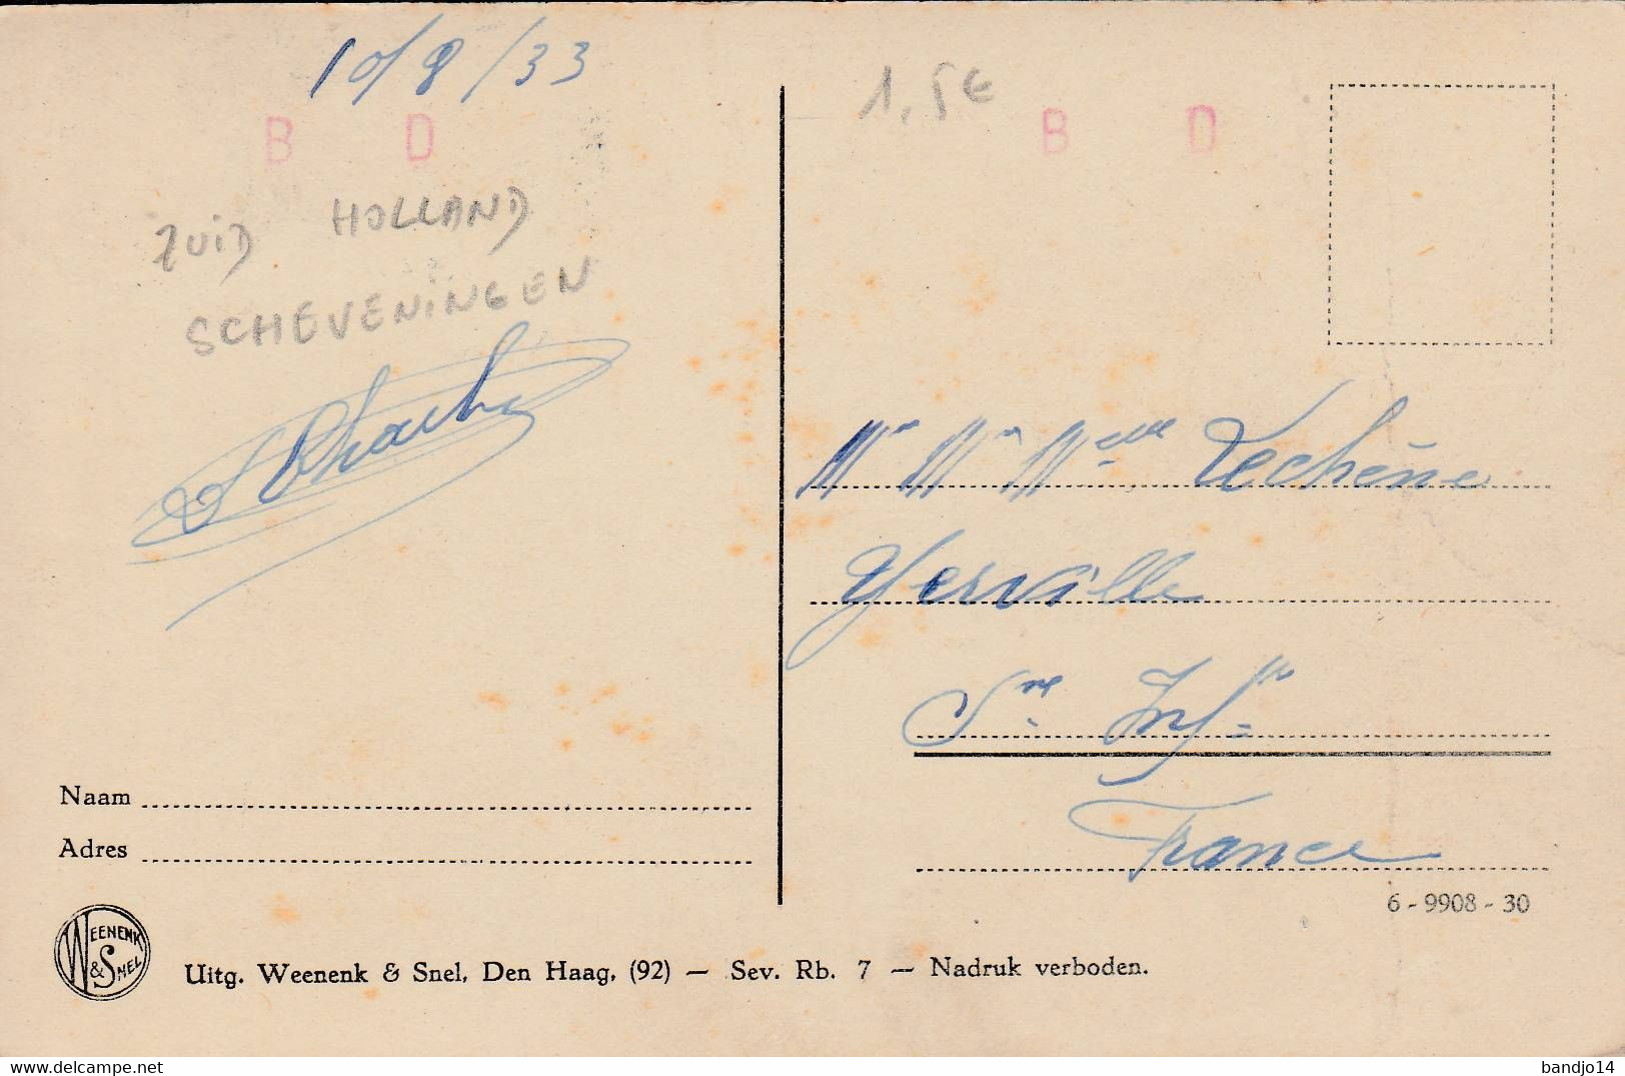 10/8/33
B D
ZUID HOLLAND
SCHEVENINGEN
1,5€
B D
Mr Mme Melle Lechêne
Yerville
Sne Infre
France
Naam
Adres
6 - 9908 - 30
WEENENK & SNEL
Uitg. Weenenk & Snel, Den Haag, (92) — Sev. Rb. 7 — Nadruk verboden.
bandjo14